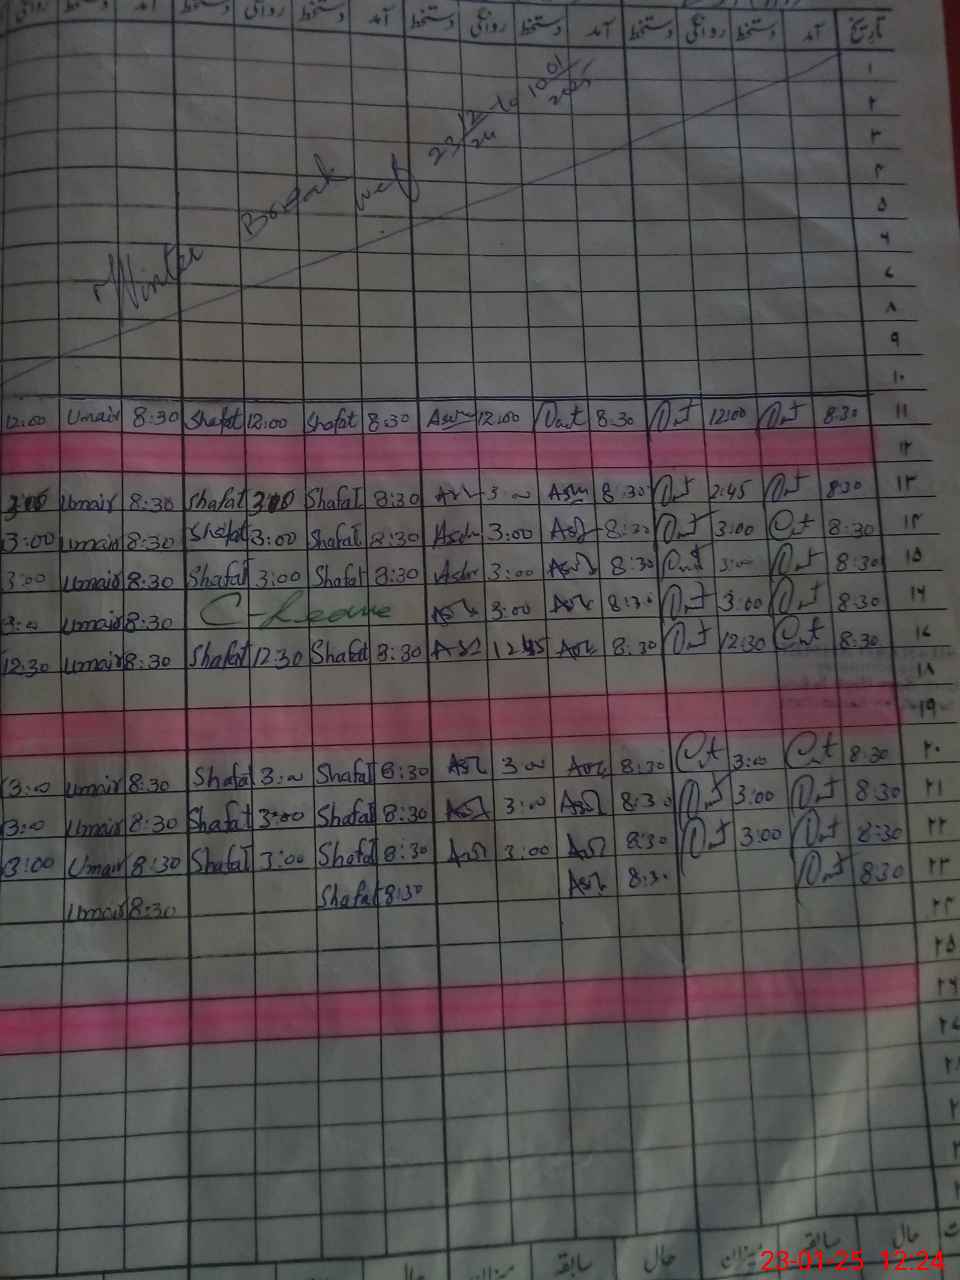 تاریخ آمد دستخط روانگی دستخط آمد دستخط روانگی دستخط آمد دستخط روانگی دستخط
۱
۲
۳
۴
۵
۶
۷
۸
۹
۱۰
Winter Break wef 23/12/24 to 10/01/2025
12:00 Umair 8:30 Shafat 12:00 Shafat 8:30 12:00 8:30 12:00 8:30 ۱۱
۱۲
3:00 Umair 8:30 Shafat 3:00 Shafat 8:30 3:00 8:30 2:45 8:30 ۱۳
3:00 Umair 8:30 Shafat 3:00 Shafat 8:30 3:00 8:30 3:00 8:30 ۱۴
3:00 Umair 8:30 Shafat 3:00 Shafat 8:30 3:00 8:30 3:00 8:30 ۱۵
3:00 Umair 8:30 C-Leave 3:00 8:30 3:00 8:30 ۱۶
12:30 Umair 8:30 Shafat 12:30 Shafat 8:30 12:45 8:30 12:30 8:30 ۱۷
۱۸
۱۹
3:00 Umair 8:30 Shafat 3:00 Shafat 8:30 3:00 8:30 3:00 8:30 ۲۰
3:00 Umair 8:30 Shafat 3:00 Shafat 8:30 3:00 8:30 3:00 8:30 ۲۱
3:00 Umair 8:30 Shafat 3:00 Shafat 8:30 3:00 8:30 3:00 8:30 ۲۲
Umair 8:30 Shafat 8:30 8:30 8:30 ۲۳
۲۴
۲۵
۲۶
۲۷
۲۸
حال سابقہ میزان حال سابقہ میزان حال
23-01-25 12:24